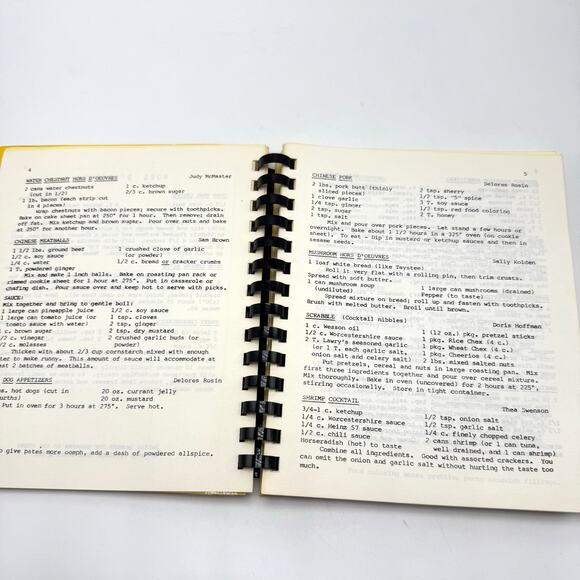 4
WATER CHESTNUT HORS D'OEUVRES Judy McMaster
2 cans water chestnuts 1 c. ketchup
(cut in 1/2) 2/3 c. brown sugar
1 lb. bacon (each strip cut
in 4 pieces)
Wrap chestnuts with bacon pieces; secure with toothpicks.
Bake on cake sheet pan at 250° for 1 hour. Then remove; drain
off fat. Mix ketchup and brown sugar. Pour over nuts and bake
at 250° for another hour.
CHINESE MEATBALLS Sam Brown
1 1/2 lbs. ground beef 1 crushed clove of garlic
1/2 c. soy sauce (or powder)
1/4 c. water 1/2 c. bread or cracker crumbs
1 T. powdered ginger
Mix and make 1 inch balls. Bake on roasting pan rack or
rimmed cookie sheet for 1 hour at 275°. Put in casserole or
chafing dish. Pour sauce over and keep hot to serve with picks.
SAUCE:
Mix together and bring to gentle boil:
1 large can pineapple juice 1/2 c. soy sauce
1 large can tomato juice (or 1 tsp. cloves
tomato sauce with water) 2 tsp. ginger
c. brown sugar 2 tsp. dry mustard
/2 c. vinegar 2 crushed garlic buds (or
/2 c. molasses powder)
Thicken with about 2/3 cup cornstarch mixed with enough
ter to make runny. This amount of sauce will accommodate at
east 2 batches of meatballs.
DOG APPETIZERS Delores Rosin
bs. hot dogs (cut in 20 oz. currant jelly
ourths) 20 oz. mustard
Put in oven for 3 hours at 275°. Serve hot.
o give pates more oomph, add a dash of powdered allspice.
5
CHINESE PORK Delores Rosin
2 lbs. pork butt (thinly 2 tsp. sherry
sliced pieces) 1/2 tsp. "5" spice
1 clove garlic 3 T. soy sauce
1/4 tsp. ginger 1/2 tsp. red food coloring
2 tsp. sugar 2 T. honey
1 tsp. salt
Mix and pour over pork pieces. Let stand a few hours or
overnight. Bake about 1 1/2 hours in a 325° oven (on cookie
sheet). To eat - Dip in mustard or ketchup sauces and then in
sesame seeds.
MUSHROOM HORS D'OEUVRES Sally Kolden
1 loaf white bread (like Taystee)
Roll it very flat with a rolling pin, then trim crusts.
Spread with soft butter.
1 can mushroom soup 1 large can mushrooms (drained)
(undiluted) Pepper (to taste)
Spread mixture on bread; roll up and fasten with toothpicks.
Brush with melted butter. Broil until brown.
SCRABBLE (Cocktail nibbles) Doris Hoffman
1 c. Wesson oil 1 (12 oz.) pkg. pretzel sticks
2 c. Worcestershire sauce 1 pkg. Rice Chex (4 c.)
2 T. Lawry's seasoned garlic 1 pkg. Wheat Chex (4 c.)
(or 1 T. each garlic salt, 1 pkg. Cheerios (4 c.)
onion salt and celery salt) 2 lbs. mixed salted nuts
Put pretzels, cereal and nuts in large roasting pan. Mix
first three ingredients together and pour over cereal mixture.
Mix thoroughly. Bake in oven (uncovered) for 2 hours at 225°,
stirring occasionally. Store in tight container.
SHRIMP COCKTAIL Thea Swenson
3/4-1 c. ketchup 1/2 tsp. onion salt
1/4 c. Worcestershire sauce 1/2 tsp. garlic salt
1/4 c. Heinz 57 sauce 1/4 c. finely chopped celery
1/2 c. chili sauce 2 cans shrimp (or 1 can tuna,
Horseradish (hot) to taste well drained, and 1 can shrimp)
Combine all ingredients. Good with assorted crackers. You
can omit the onion and garlic salt without hurting the taste too
much.